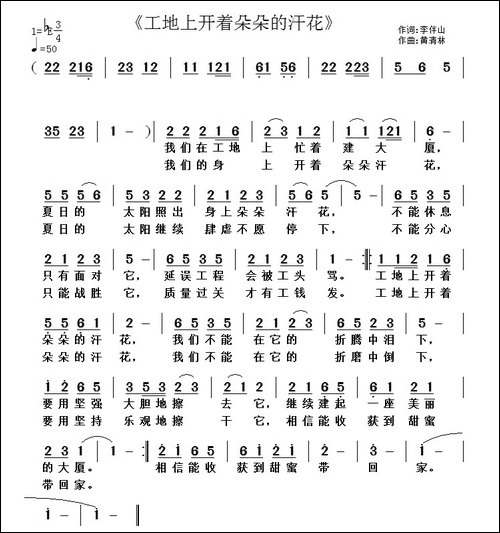 《工地上开着朵朵的汗花》
1=♭E 3/4
♩=50
作词:李伴山
作曲:黄清林
( 22 216 | 23 12 | 11 121 | 61 56 | 22 223 | 5 6 5 |
35 23 | 1 - ) | 2 2 2 1 6 | 2 3 1 2 | 1 1 1 2 1 | 6 - |
我们在工地 上 忙着 建 大 厦,
我们的身 上 开着 朵朵汗 花,
5 5 5 6 | 5 3 2 2 | 5 3 2 1 | 2 5 - | 5 - | 5 6 5 5 |
夏日的 太阳照出 身上朵朵 汗 花, 不能休息
夏日的 太阳继续 肆虐不愿 停 下, 不能分心
2 1 2 3 | 5 - | 6 5 3 5 | 2 1 2 3 | 1 - :||: 1 1 2 1 6 |
只有面对 它, 延误工程 会被工头 骂。 工地上开着
只能战胜 它, 质量过关 才有工钱 发。 工地上开着
5 5 6 1 | 2 - | 6 5 3 5 | 2 3 2 1 | 6 5 3 5 | 2 - |
朵朵的汗 花, 我们不能 在它的 折腾中泪 下,
朵朵的汗 花, 我们不能 在它的 折磨中倒 下,
1 2 6 5 | 3 5 3 2 | 2 3 | 1 2 6 5 | 3 2 3 5 | 6 2 1 6 |
要用坚强 大胆地擦 去 它, 继续建起 一座 美丽
要用坚持 乐观地擦 干 它, 相信能收 获到 甜蜜
2 3 1 | 1 - :|| 2 1 6 5 | 6 2 1 6 | 2 - | 3 - |
的大厦。 相信能收 获到甜蜜 带 回 家。
带回家。
1 - | 1 - ||